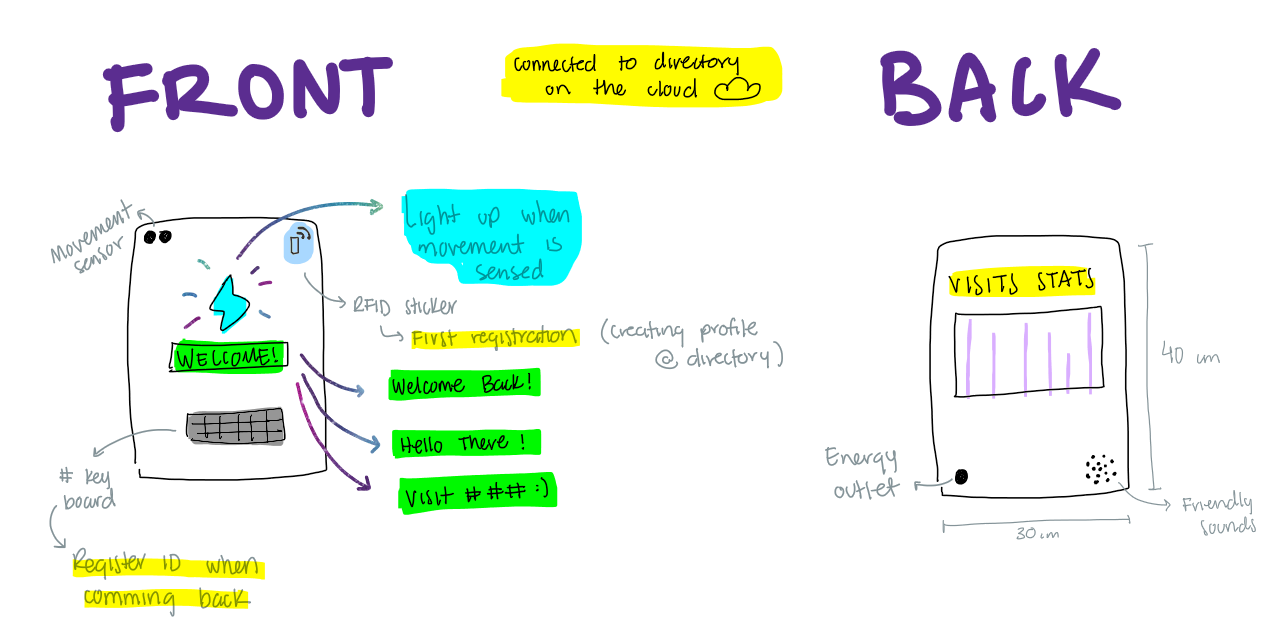 FRONT
connected to directory
on the cloud
BACK
Movement
sensor
Light up when
movement is
sensed
RFID sticker
First registration
(creating profile
@ directory)
WELCOME!
Welcome Back!
Hello There!
Visit ### :)
# key
board
Register ID when
comming back
VISITS STATS
40 cm
Energy
outlet
Friendly
sounds
30 cm